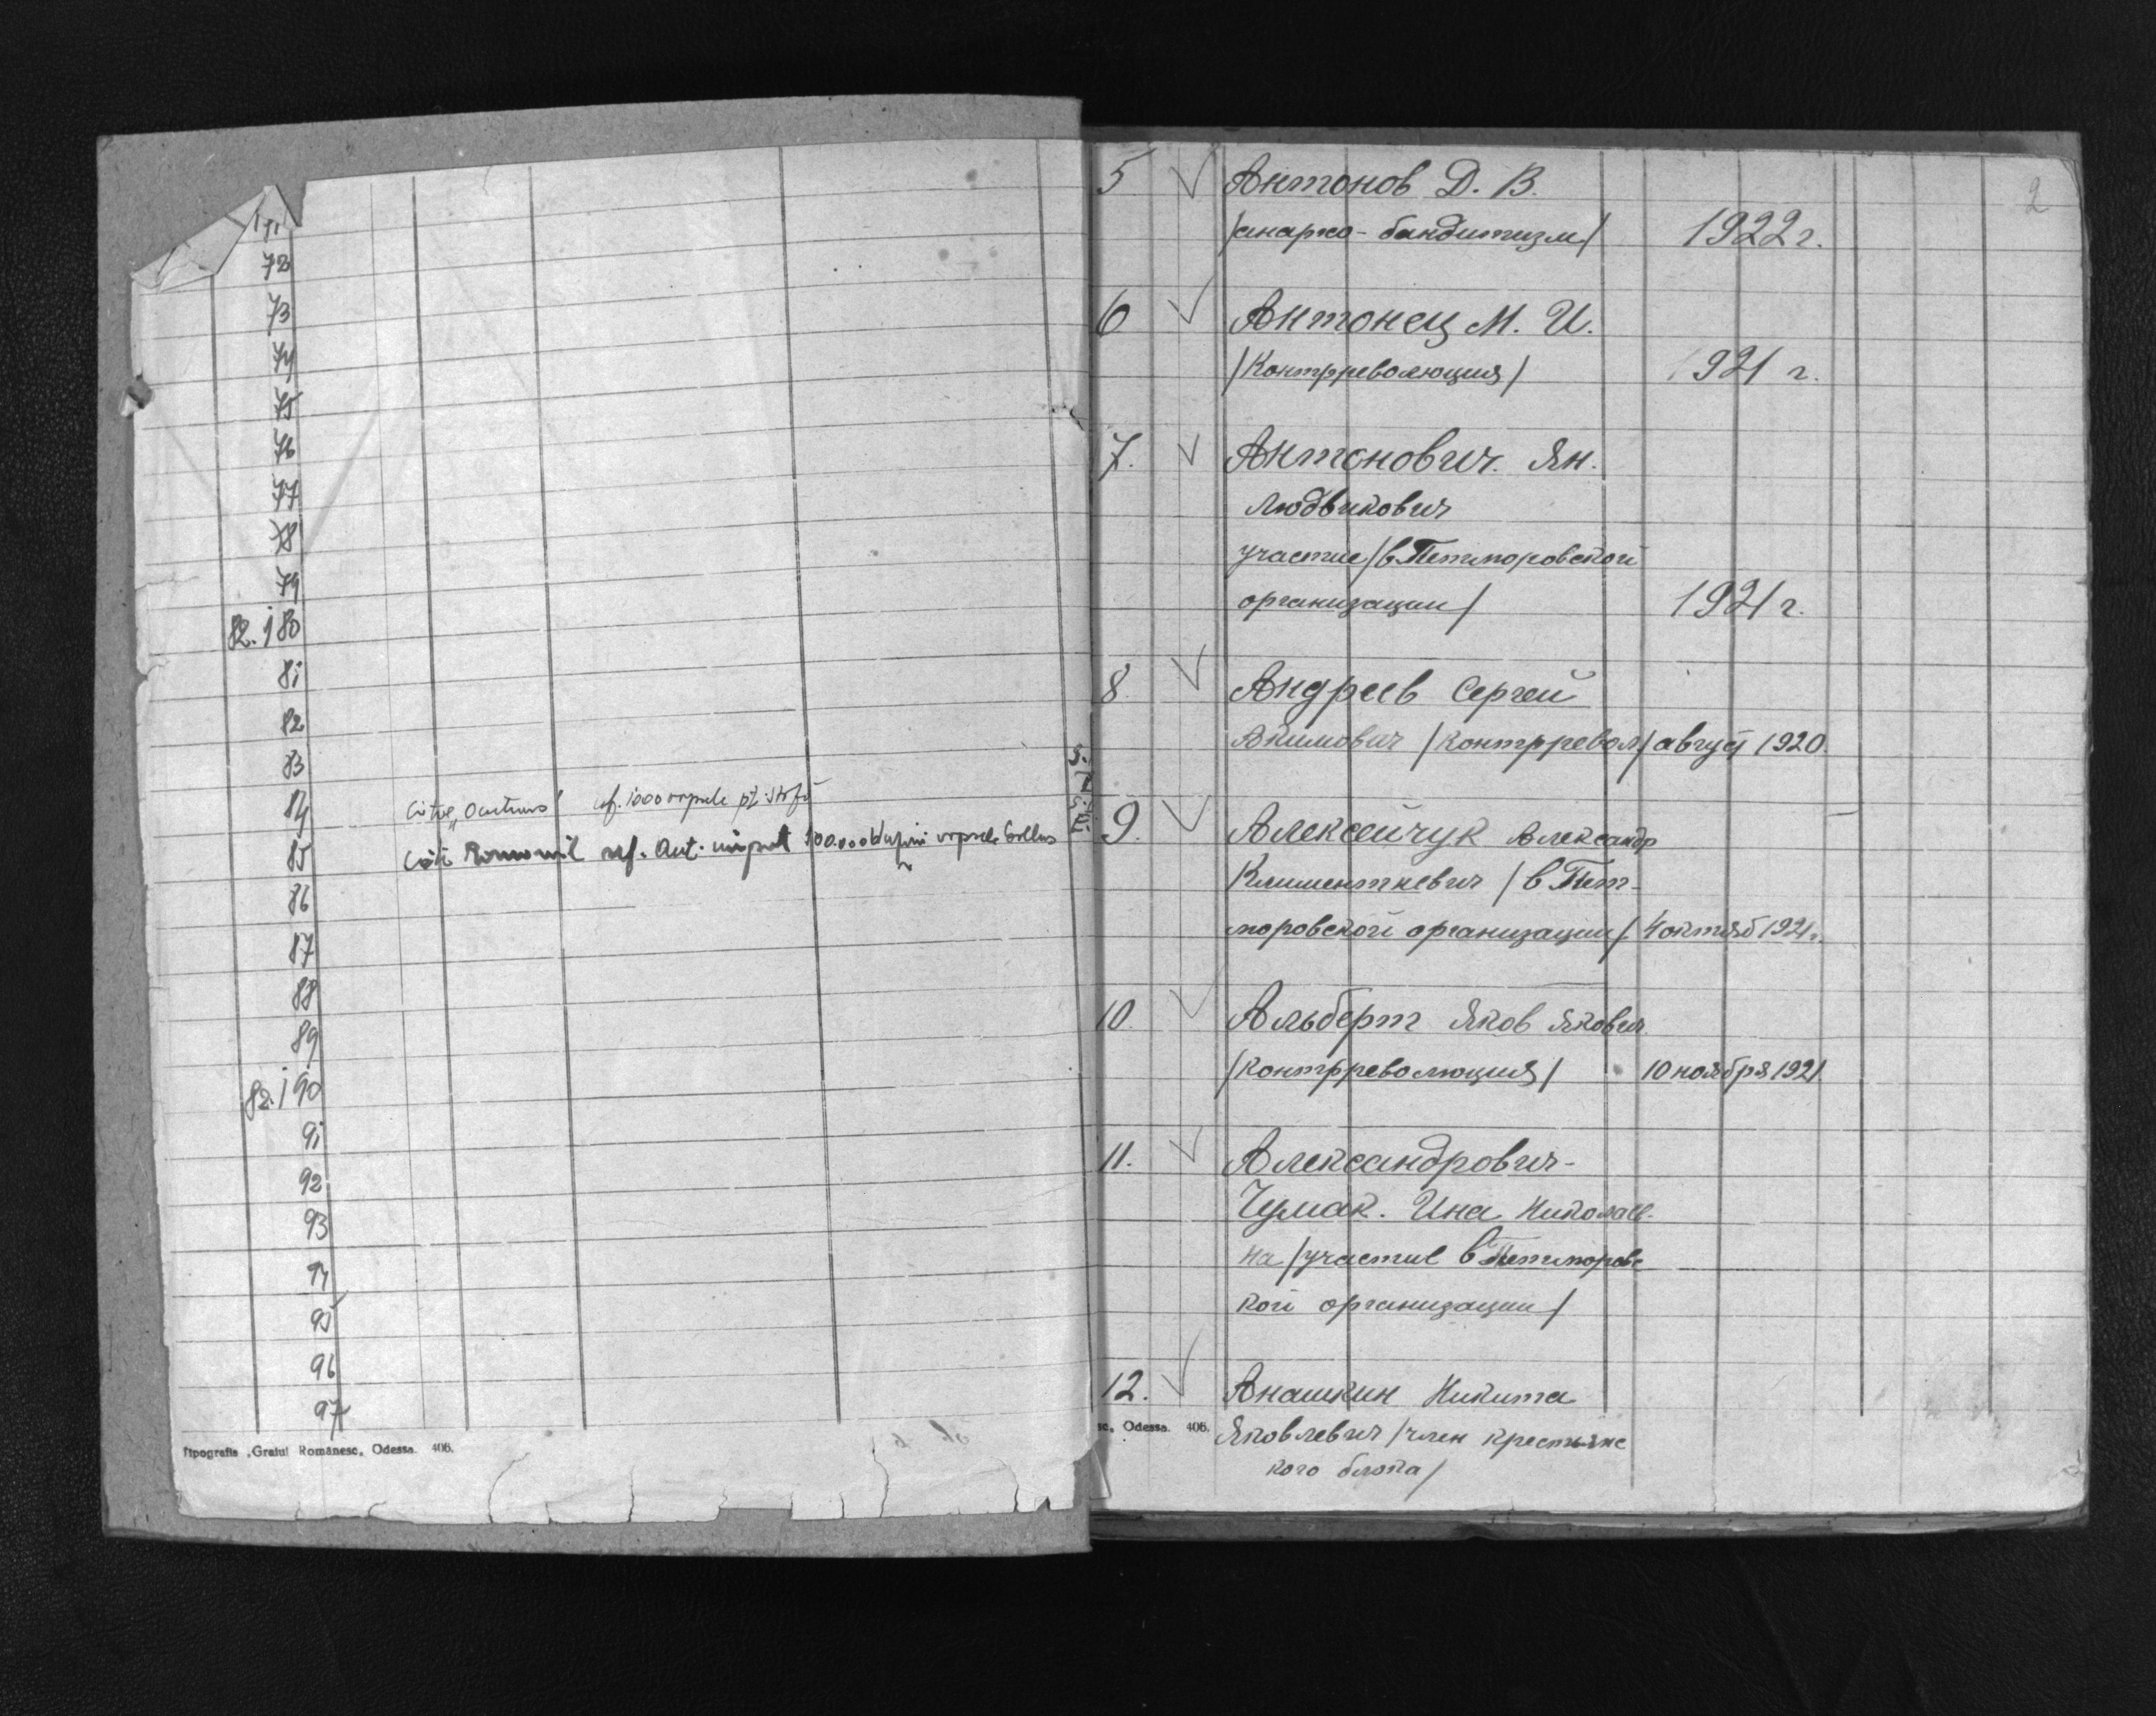 71
72
73
74
75
76
77
78
79
82.180
81
82
83
84
ref. 1000
85
ref. Aut. import 100.000
86
87
88
89
82.190
91
92
93
94
95
96
97
Tipografia „Graiul Românesc„ Odessa. 406.
2
5 Антонов Д. В.
/анархо-бандитизм/ 1922 г.
6 Антонец М. И.
/Контрреволюция/ 1921 г.
7. Антонович Ян.
Людвикович
участие /в Петлюровской
организации/ 1921 г.
8 Андреев Сергей
Акимович /контрревол/ август 1920.
9. Алексейчук Александр
Климентиевич /в Пет-
люровской организации/ 4 октяб 1921 г.
10. Альберт Яков Яковлев
/контрреволюция/ 10 ноября 1921
11. Александрович-
Чумак. Ина Николаев-
на /участие в Петлюровс
кой организации/
12. Анашкин Никита
Яковлевич /член крестьянс
кого блока/
sc„ Odessa. 406.